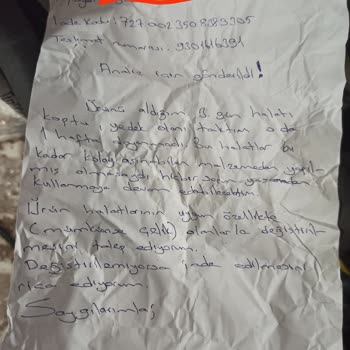 İade Kodu: 7270023508089395
Teslimat numarası: 9301616391
Analiz için gönderildi!
Ürünü aldığım 3. gün halatı
koptu, yedek olanı taktım o da
1 hafta dayanmadı. Bu halatlar bu
kadar kolay aşınabilen malzemeden yapıl-
mış olmasaydı hiçbir sorun yaşamadan
kullanmaya devam edebilecektim.
Ürün halatlarının uygun özellikte
(mümkünse çelik) olanlarla değiştiril-
mesini talep ediyorum.
Değiştirilemiyorsa iade edilmesini
rica ediyorum
Saygılarımla